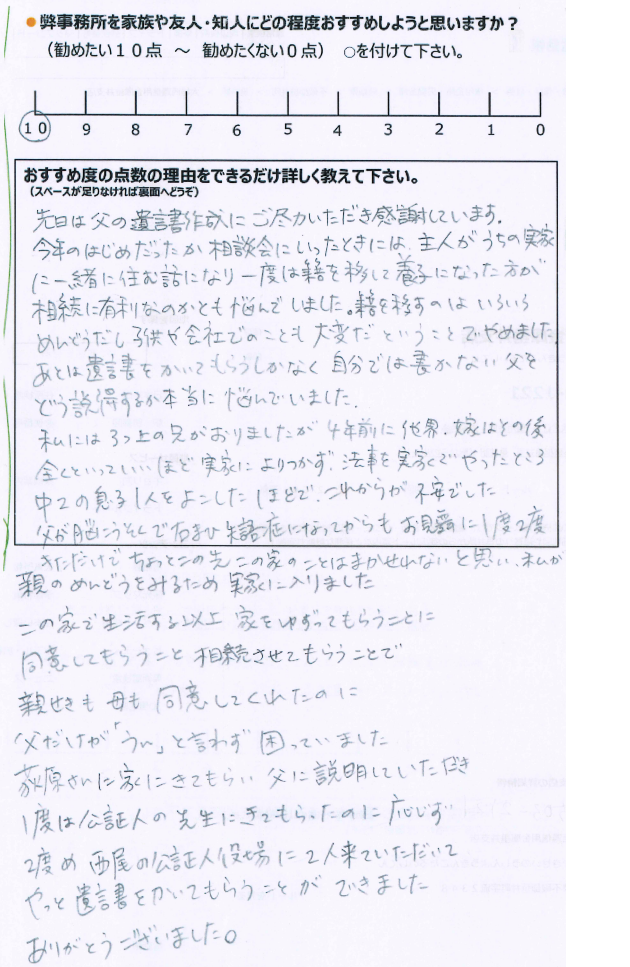 ●弊事務所を家族や友人・知人にどの程度おすすめしようと思いますか？
（勧めたい１０点　～　勧めたくない０点）　○を付けて下さい。
10 9 8 7 6 5 4 3 2 1 0
おすすめ度の点数の理由をできるだけ詳しく教えて下さい。
（スペースが足りなければ裏面へどうぞ）
先日は父の遺言書作成にご尽力いただき感謝しています。
今年のはじめだったか相談会にいったときには、主人がうちの実家
に一緒に住む話になり一度は籍を移して養子になった方が
相続に有利なのかとも悩んでしました。籍を移すのはいろいろ
めんどうだし子供や会社でのことも大変だということでやめました
あとは遺言書をかいてもらうしかなく自分では書かない父を
どう説得するか本当に悩んでいました。
私には3つ上の兄がおりましたが4年前に他界、嫁はその後
全くといっていいほど実家によりつかず、法事を実家でやったところ
中2の息子1人をよこしたほどで、これからが不安でした
父が脳こうそくで右まひ失語症になってからもお見舞に1度2度
きただけでちょっとこの先この家のことはまかせれないと思い、私が
親のめんどうをみるため実家に入りました
この家で生活する以上家をゆずってもらうことに
同意してもらうこと相続させてもらうことで
親せきも母も同意してくれたのに
父だけが「うん」と言わず困っていました
荻原さんに家にきてもらい父に説明していただき
1度は公証人の先生にきてもらったのに応じず
2度め西尾の公証人役場に2人来ていただいて
やっと遺言書をかいてもらうことができました
ありがとうございました。